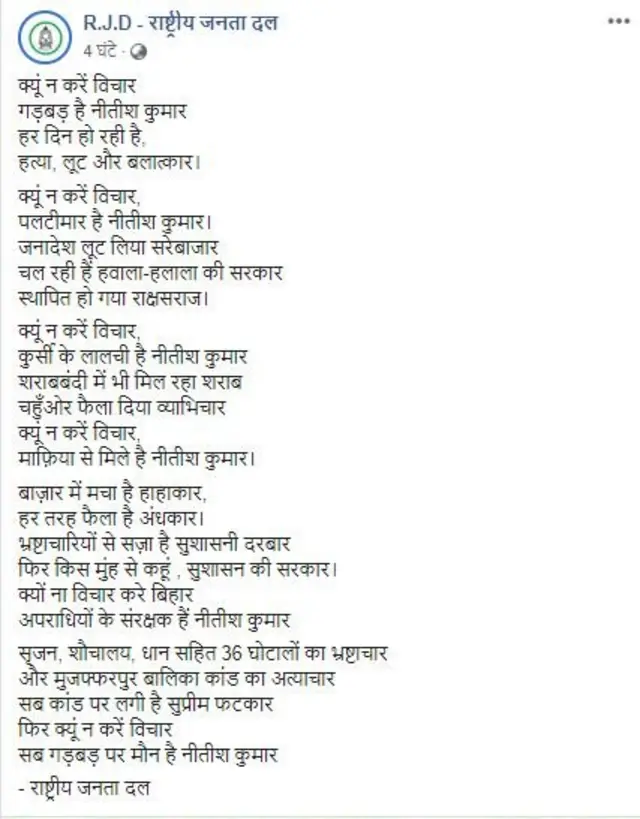 R.J.D - राष्ट्रीय जनता दल
4 घंटे ·
क्यूं न करें विचार
गड़बड़ है नीतीश कुमार
हर दिन हो रही है,
हत्या, लूट और बलात्कार।
क्यूं न करें विचार,
पलटीमार है नीतीश कुमार।
जनादेश लूट लिया सरेबाजार
चल रही हैं हवाला-हलाला की सरकार
स्थापित हो गया राक्षसराज।
क्यूं न करें विचार,
कुर्सी के लालची है नीतीश कुमार
शराबबंदी में भी मिल रहा शराब
चहुँओर फैला दिया व्याभिचार
क्यूं न करें विचार,
माफ़िया से मिले है नीतीश कुमार।
बाज़ार में मचा है हाहाकार,
हर तरह फैला है अंधकार।
भ्रष्टाचारियों से सज़ा है सुशासनी दरबार
फिर किस मुंह से कहूं , सुशासन की सरकार।
क्यों ना विचार करे बिहार
अपराधियों के संरक्षक हैं नीतीश कुमार
सृजन, शौचालय, धान सहित 36 घोटालों का भ्रष्टाचार
और मुजफ्फरपुर बालिका कांड का अत्याचार
सब कांड पर लगी है सुप्रीम फटकार
फिर क्यूं न करें विचार
सब गड़बड़ पर मौन है नीतीश कुमार
- राष्ट्रीय जनता दल